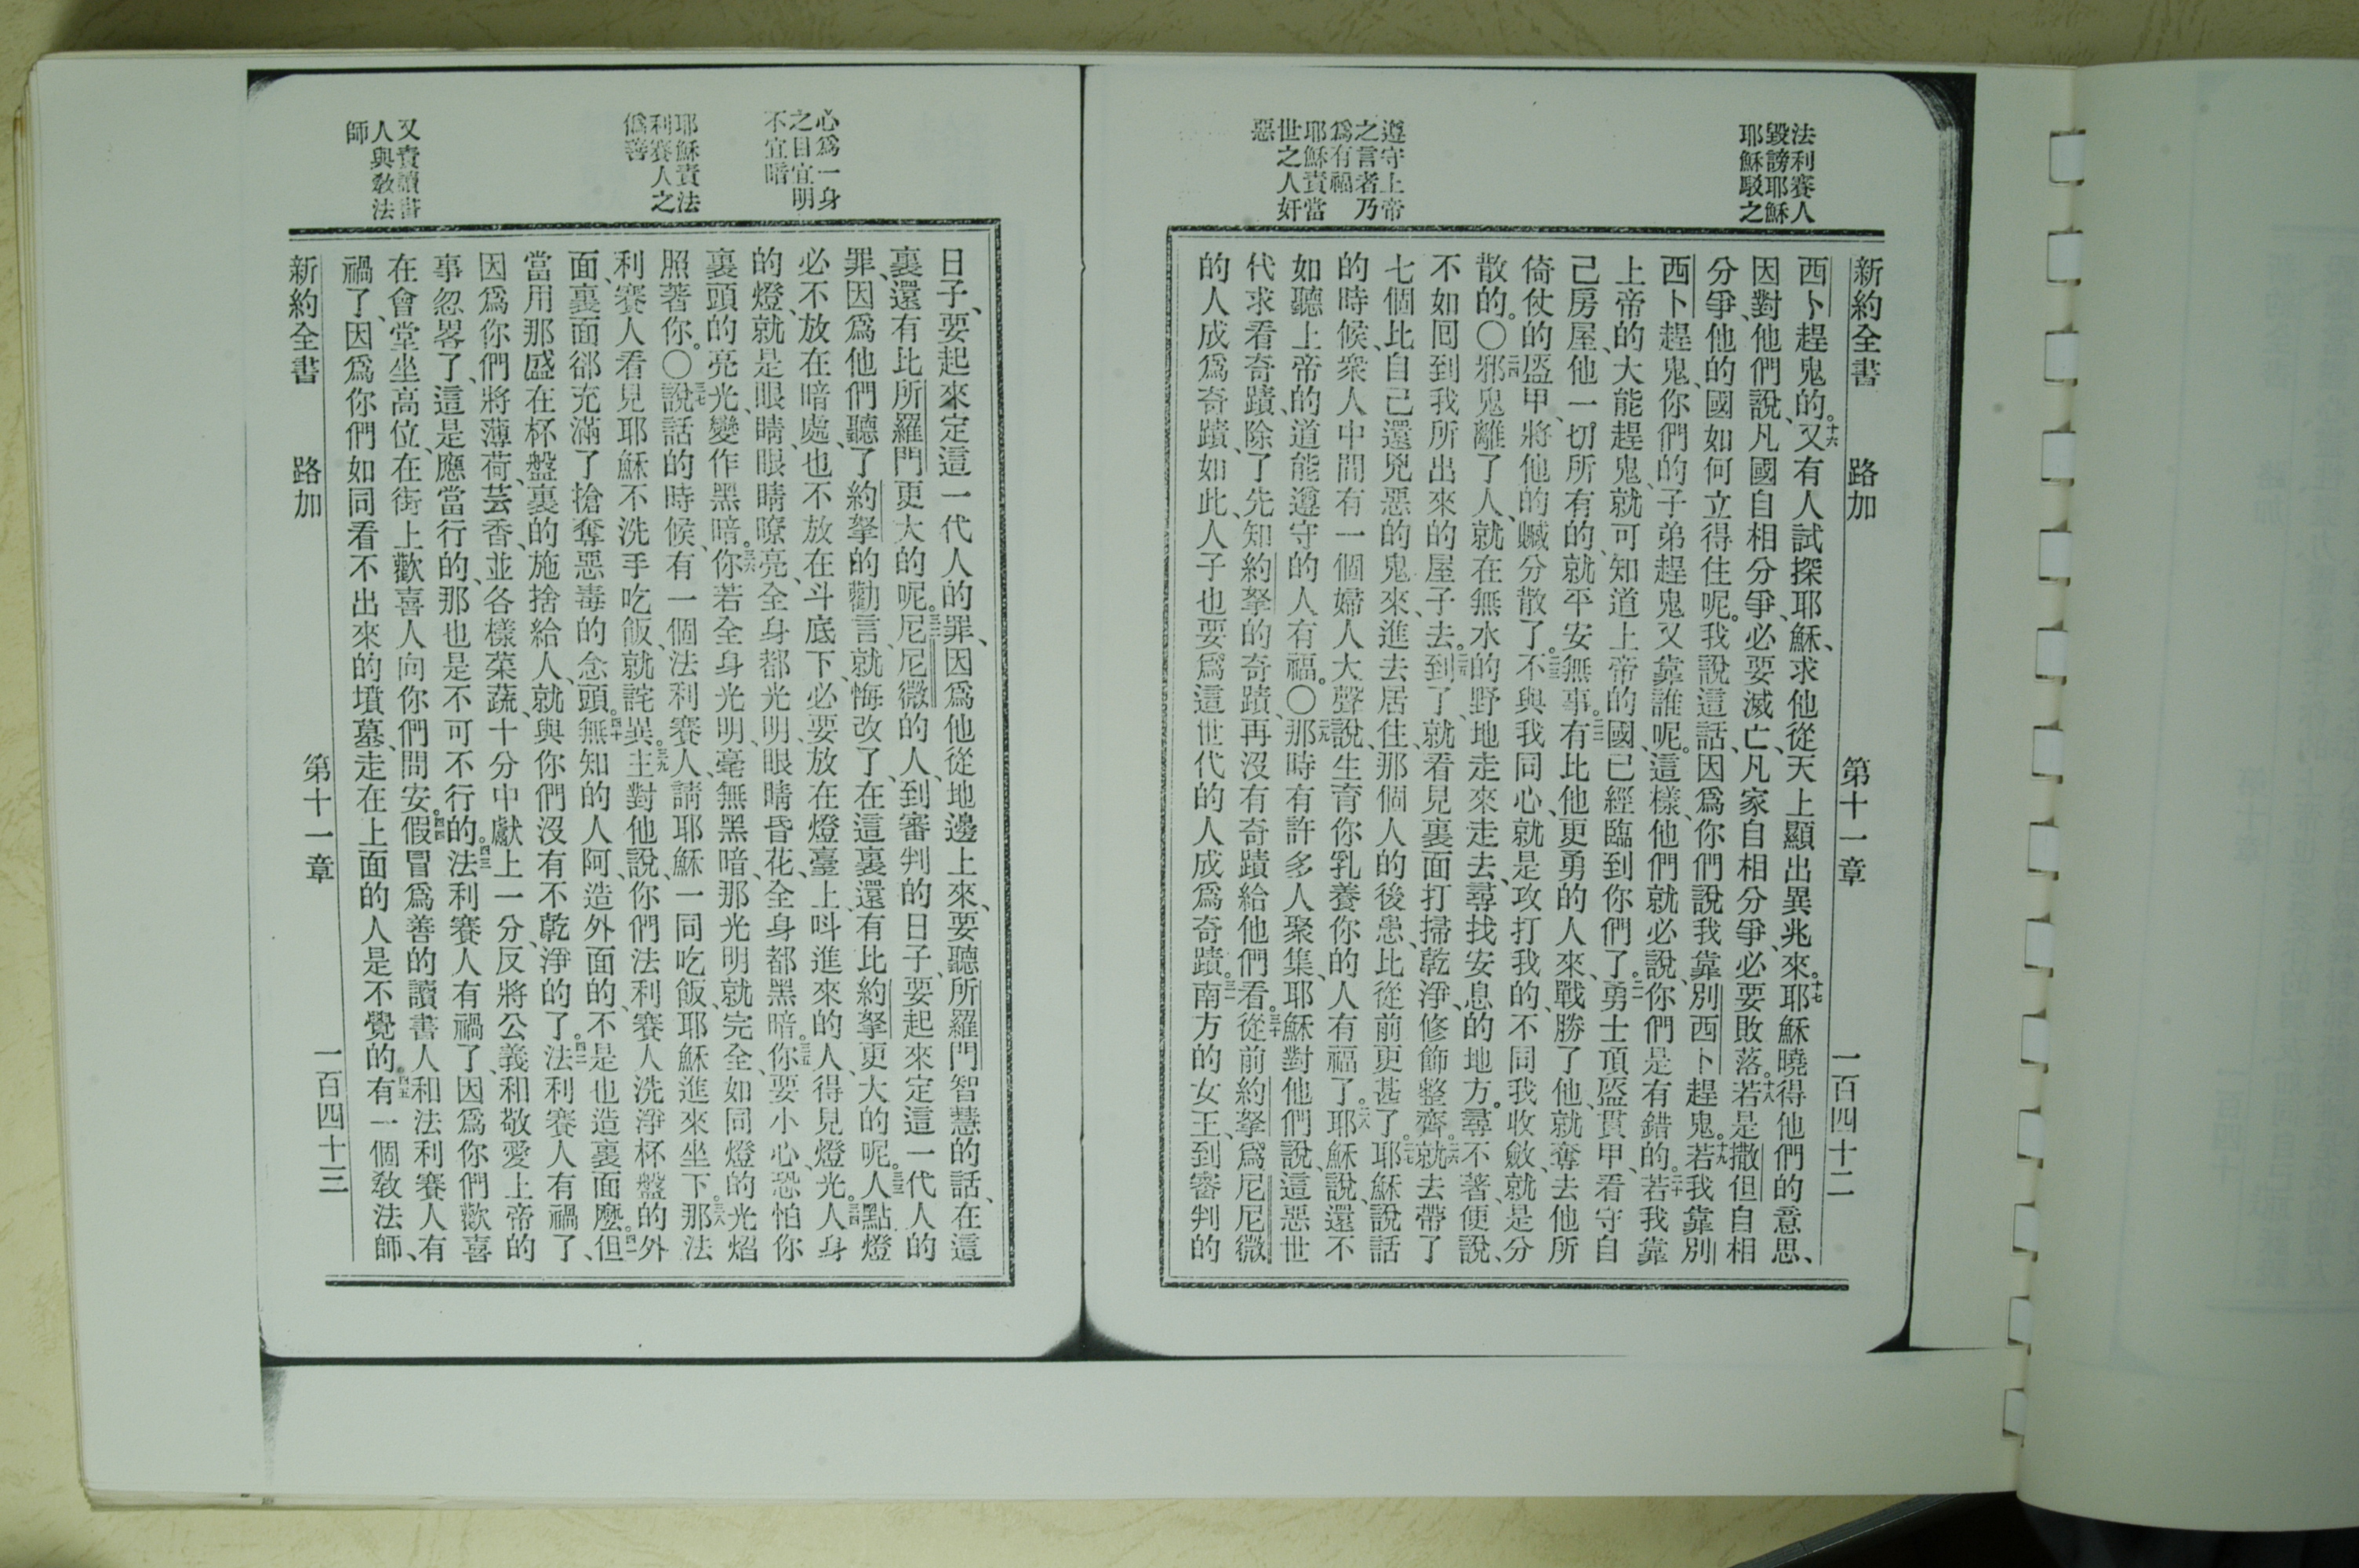 法利賽人
毀謗耶穌
耶穌駁之
遵守上帝
之言者乃
爲有福
耶穌責當
世之人奸
惡
新約全書 路加 第十一章 一百四十二
西卜趕鬼的。十六又有人試探耶穌、求他從天上顯出異兆來。十七耶穌曉得他們的意思、
因對他們說、凡國自相分爭、必要滅亡、凡家自相分爭、必要敗落。十八若是撒但自相
分爭、他的國如何立得住呢。我說這話、因爲你們說我靠別西卜趕鬼。十九若我靠別
西卜趕鬼、你們的子弟趕鬼又靠誰呢。這樣、他們就必說、你們是有錯的。二十若我靠
上帝的大能趕鬼、就可知道上帝的國、已經臨到你們了。二一勇士頂盔貫甲、看守自
己房屋、他一切所有的、就平安無事。二二有比他更勇的人來、戰勝了他、就奪去他所
倚仗的盔甲、將他的贓分散了。二三不與我同心、就是攻打我的、不同我收斂、就是分
散的。〇二四邪鬼離了人、就在無水的野地走來走去、尋找安息的地方。尋不著、便說、
不如囘到我所出來的屋子去。二五到了、就看見裏面打掃乾淨、修飾整齊。二六就去帶了
七個比自己還兇惡的鬼來、進去居住、那個人的後患、比從前更甚了。二七耶穌說話
的時候、衆人中間有一個婦人大聲說、生育你乳養你的人有福了。二八耶穌說、還不
如聽上帝的道能遵守的人有福。〇二九那時有許多人聚集、耶穌對他們說、這惡世
代求看奇蹟、除了先知約拏的奇蹟、再沒有奇蹟給他們看。三十從前約拏爲尼尼微
的人成爲奇蹟、如此、人子也要爲這世代的人成爲奇蹟。三一南方的女王、到審判的
心爲一身
之目宜明
不宜暗
耶穌責法
利賽人之
僞善
又責讀書
人與敎法
師
日子、要起來定這一代人的罪、因爲他從地邊上來、要聽所羅門智慧的話、在這
裏還有比所羅門更大的呢。三二尼尼微的人、到審判的日子、要起來定這一代人的
罪、因爲他們聽了約拏的勸言、就悔改了、在這裏還有比約拏更大的呢。三三人點燈
必不放在暗處、也不放在斗底下、必要放在燈臺上、呌進來的人、得見燈光。三四人身
的燈、就是眼睛、眼睛暸亮、全身都光明、眼睛昏花、全身都黑暗。三五你要小心、恐怕你
裏頭的亮光、變作黑暗。三六你若全身光明、毫無黑暗、那光明就完全、如同燈的光熖
照著你。〇三七說話的時候、有一個法利賽人、請耶穌一同吃飯、耶穌進來坐下。三八那法
利賽人看見耶穌不洗手吃飯、就詫異。三九主對他說、你們法利賽人洗淨杯盤的外
面、裏面郤充滿了搶奪惡毒的念頭。四十無知的人阿、造外面的、不是也造裏面麽。四一但
當用那盛在杯盤裏的施捨給人、就與你們沒有不乾淨的了。四二法利賽人有禍了、
因爲你們將薄荷、芸香、並各樣菜蔬、十分中獻上一分、反將公義和敬愛上帝的
事忽畧了、這是應當行的、那也是不可不行的。四三法利賽人有禍了、因爲你們歡喜
在會堂坐高位、在街上歡喜人向你們問安。四四假冒爲善的讀書人和法利賽人有
禍了、因爲你們如同看不出來的墳墓、走在上面的人是不覺的。四五有一個敎法師、
新約全書 路加 第十一章 一百四十三